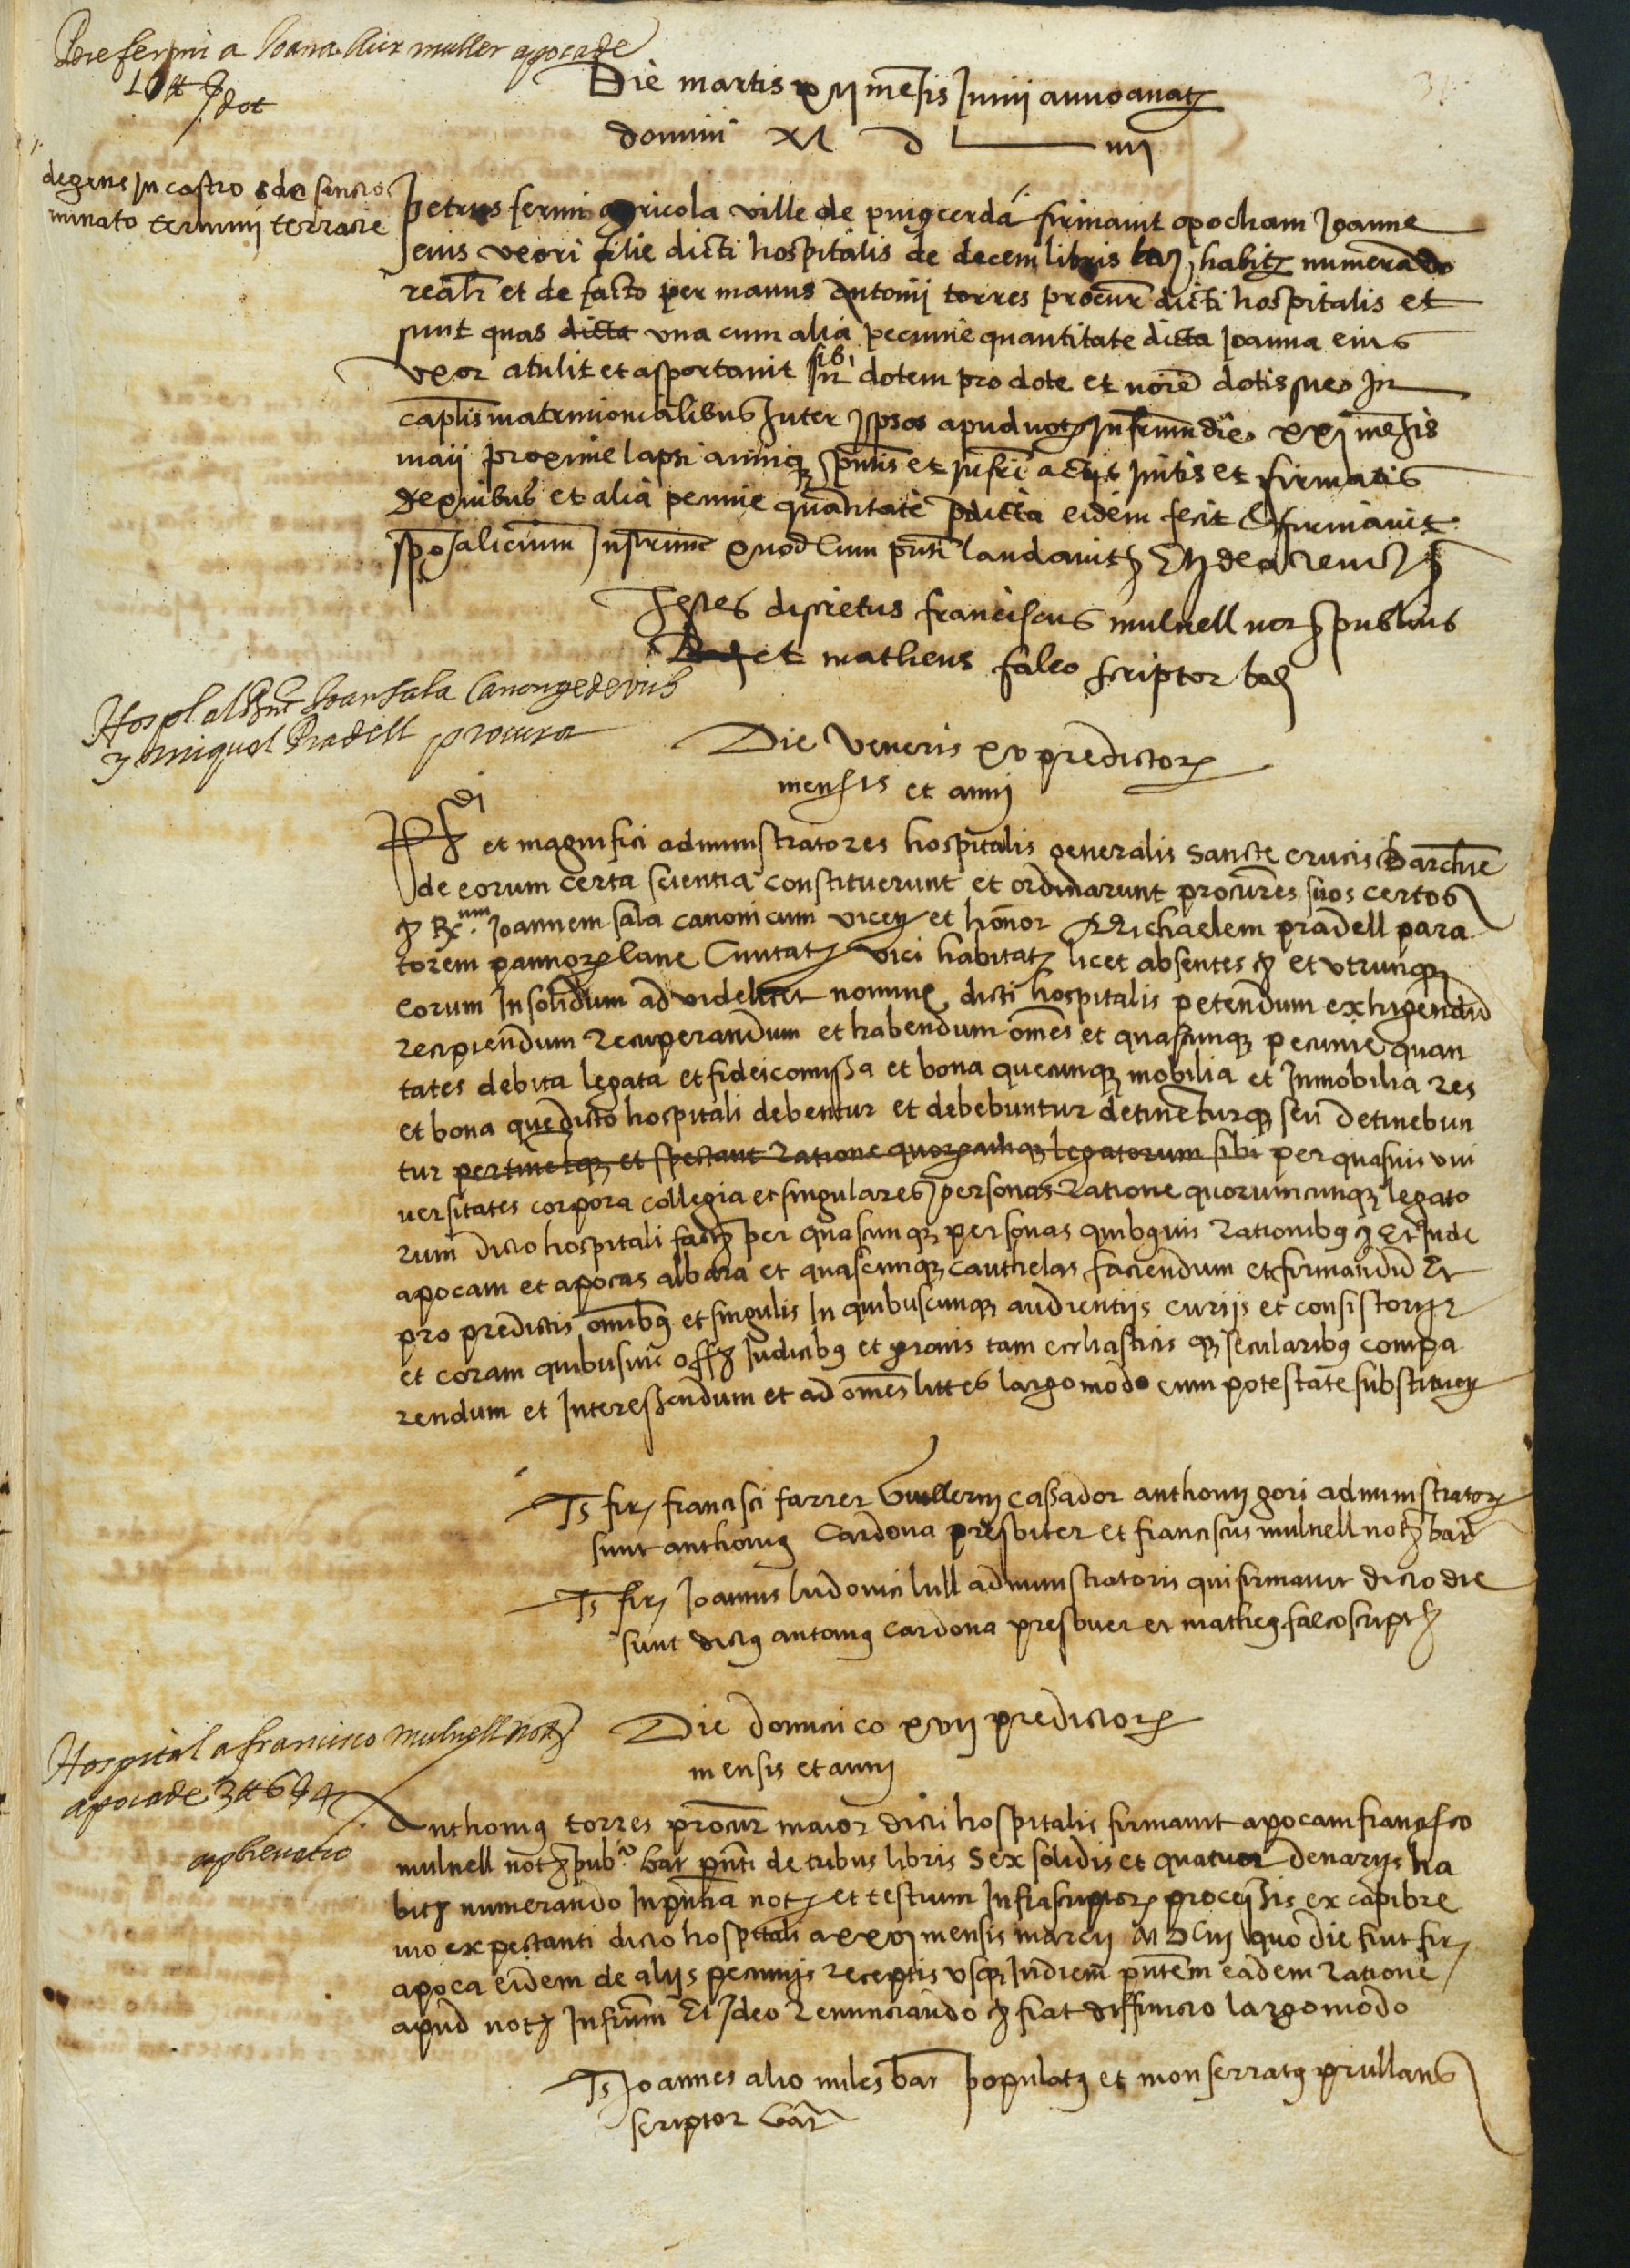 Pere fermi a Joana Aux muller apoca de
10 ⁊ dot
Die martis xij mensis Junij anno a nat
domini M D L iiij
degens in castro de sancto
minato termini terrarie
Petrus fermi agricola ville de puigcerda firmavit apocham Joanne
eius uxori filie dicti hospitalis de decem libris habit numerando
realr et de facto per manus Antonij torres procur dicti hospitalis et
sunt quas dicta una cum alia pecunie quantitate dicta Joanna eius
uxor atulit et asportavit sibi in dotem pro dote et noīe dotis sue In
caplis matrimonialibus Inter ipsos apud not Infrum die xxi mensis
maij proxime lapsi anniq pntis et Infri actis initis et firmatis
de quibus et alia pecunie quantitate pdicta eidem fecit et firmavit
sponsalicium Instrum quod cum pnti laudavit Et Ideo renun
Testes discretus franciscus mulnell not publicus
Bar et matheus falco scriptor bar
Hospl al Joan sala Canonge de vich
y miquel Pradell procura
Die Veneris xv predictor
mensis et anni
Rdi et magnifici administratores hospitalis generalis sancte crucis Barchne
de eorum certa scientia constituerunt et ordinarunt procures suos certos
Rnum Joannem sala canonicum vicen et honor Michaelem pradell para
torem pannor lane Civitat vici habitat licet absentes et utrunq
eorum Insolidum ad videlicet nomine dicti hospitalis petendum exhigendū
recipiendum recuperandum et habendum omēs et quascunq pecunie quan
tates debita legata et fideicomissa et bona quecunq mobilia et Inmobilia res
et bona que dicto hospitali debentur et debebuntur detinenturq seu detinebun
tur pertinetq et spectant ratione quorumcunq legatorum sibi per quasvis uni
versitates corpora collegia et singulares personas ratione quorumcunq legato
rum dicto hospitali fact per quascunq personas quibusvis rationibus Et Inde
apocam et apocas albara et quascunq cauthelas faciendum et firmandū Et
pro predictis omibus et singulis In quibuscunq audientijs curijs et consistorijs
et coram quibusvis off Judicibus et pronis tam eccliasticis q secularibus compa
rendum et Interessendum et ad omēs littes largo modo cum potestate substituen
Ts fir francisci farrer Guillermi Cassador anthonij gori administrator
sunt anthonius Cardona presbiter et franciscus mulnell not bar
Ts fir Joannis ludovici lull administratoris qui firmavit dicto die
sunt dictus antonius cardona presbiter et matheus falco script
Hospital a francisco mulnell not
apoca de 3 ⁊ 6 ⁊ 4
Die dominico xvij predictor
mensis et anni
Anthonius torres procur maior dicti hospitalis firmavit apocam francisco
mulnell not pubco bar pnti de tribus libris sex solidis et quatuor denarijs ha
bit numerando In pntia not et testium Infrascriptor processis ex capibre
vio expectanti dicto hospitali a xxvj mensis marcij M D Liij quo die fuit fir
apoca eidem de alijs pecunijs receptis usq Indiem pntem eadem ratione
apud not Infrum Et Ideo renunciando fiat diffinicio largo modo
Ts Joannes alio miles bar populatus et monserratus prullans
scriptor bar